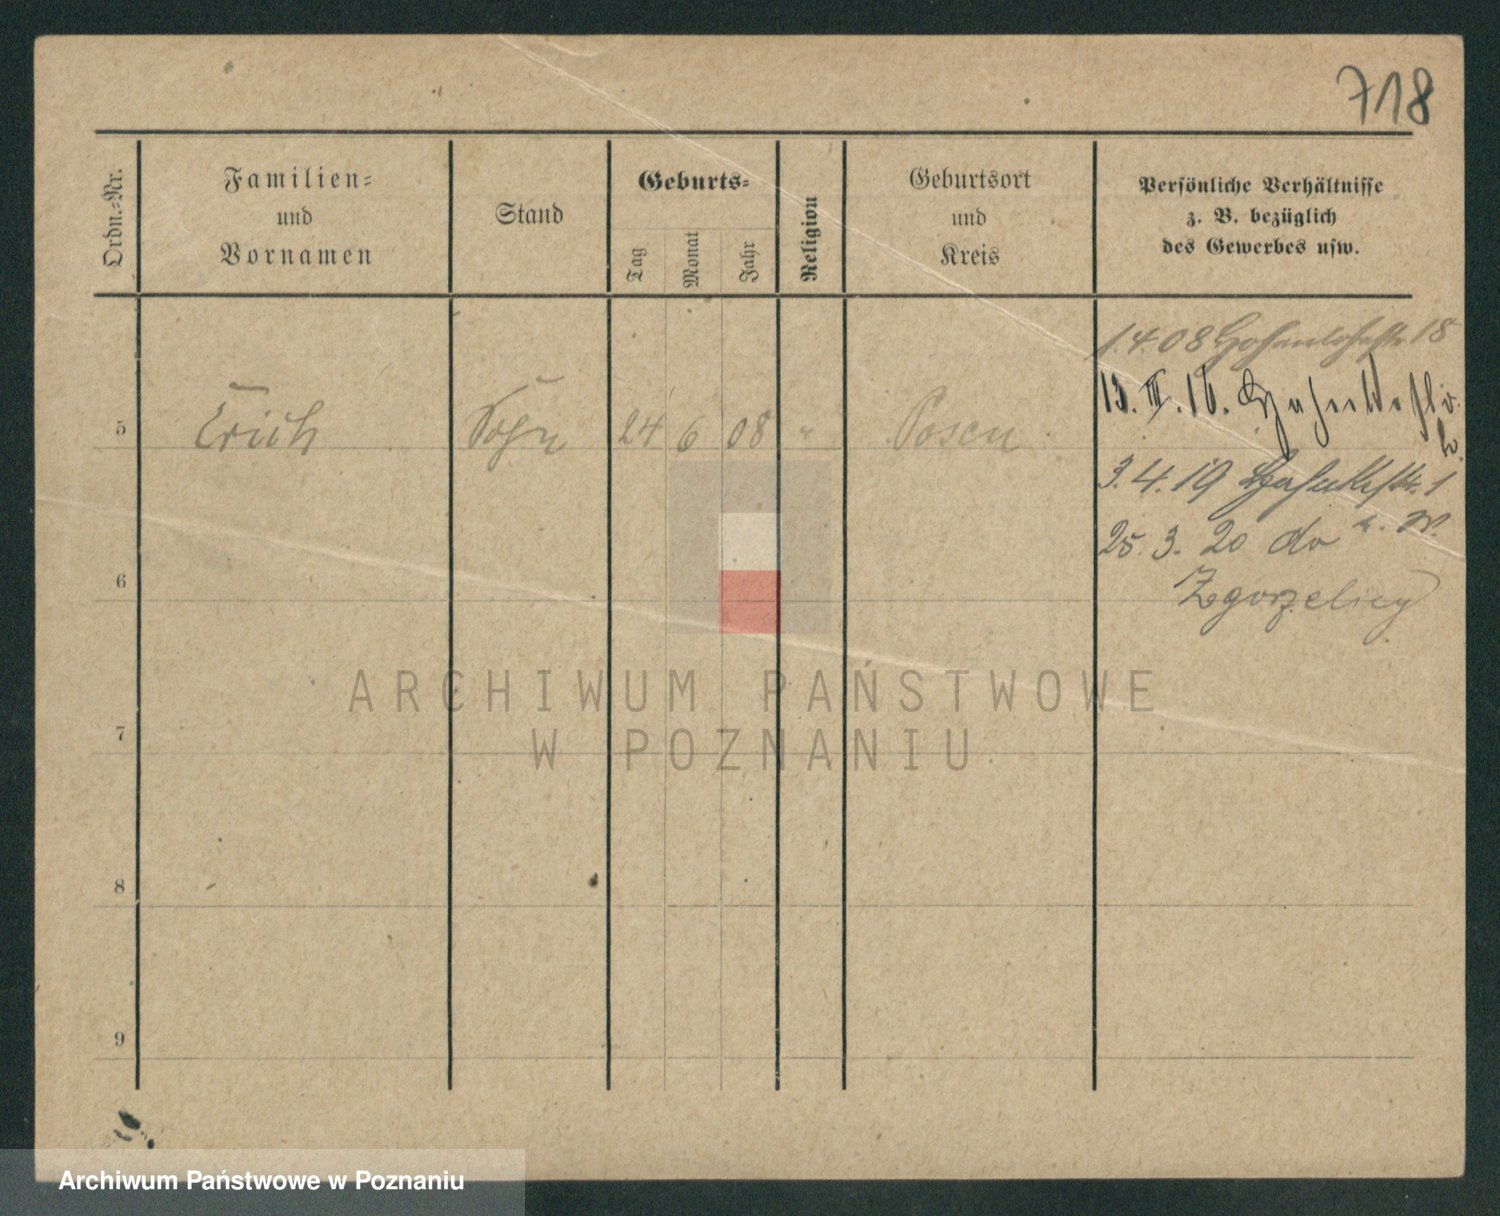 718
Ordn.-Nr.
Familien-
und
Vornamen
Stand
Geburts-
Tag
Monat
Jahr
Religion
Geburtsort
und
Kreis
Persönliche Verhältnisse
z. B. bezüglich
des Gewerbes usw.
1.4.08 Hohenlohestr 18
13. III. 16.
5 Erich Sohn 24 6 08 " Posen
3.4.19
25. 3. 20 do
6
Zgorzelicy
7
8
9
ARCHIWUM PAŃSTWOWE
W POZNANIU
Archiwum Państwowe w Poznaniu